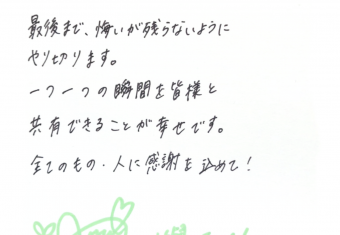 最後まで、悔いが残らないように
やり切ります。
一つ一つの瞬間を皆様と
共有できることが幸せです。
全てのもの・人に感謝を込めて!